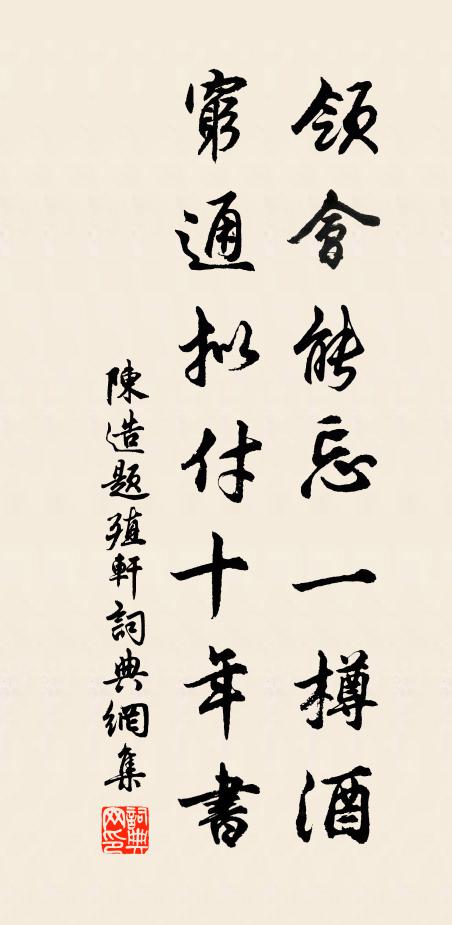 領會能忘一樽酒
窮通拟付十年書
陳造題殖軒詞典網集
詞典网印